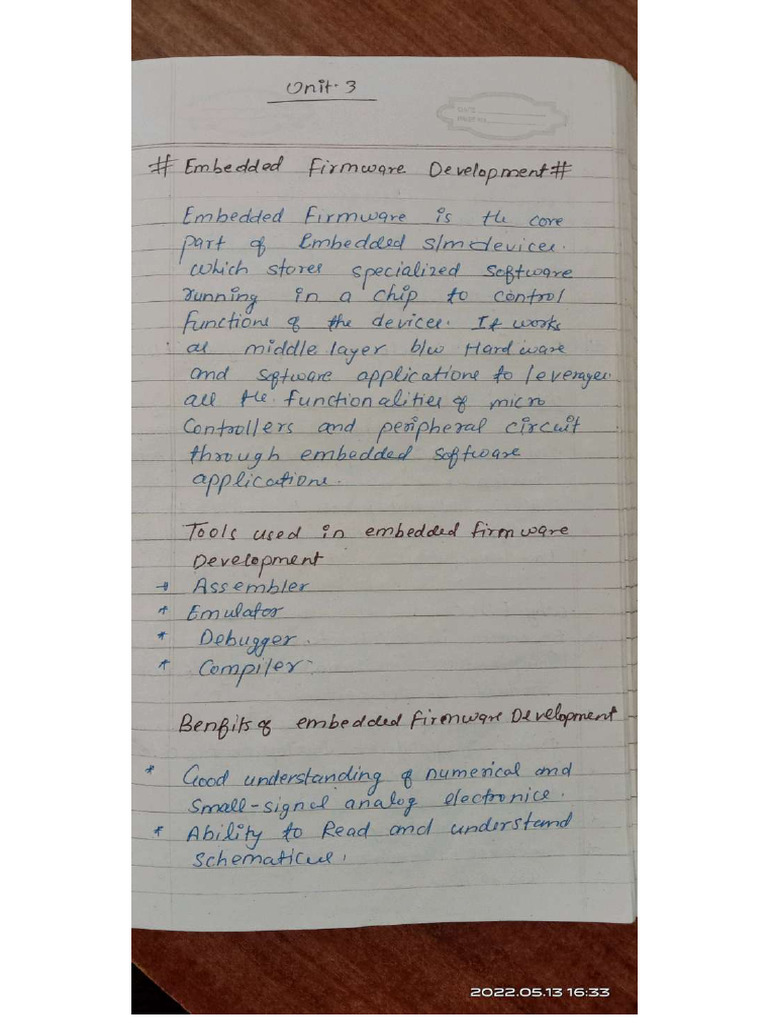 Unit. 3
DATE
PAGE NO.
# Embedded Firmware Development #
Embedded Firmware is the core
part of Embedded s/m devices.
which stores specialized software
running in a chip to control
functions of the devices. It works
as middle layer b/w Hardware
and software applications to leverages
all the functionalities of micro
Controllers and peripheral circuit
through embedded software
applications.
Tools used in embedded firmware
Development
→ Assembler
* Emulator
* Debugger.
* Compiler
Benfits of embedded firmware Development
* Good understanding of numerical and
small-signal analog electronics.
* Ability to Read and understand
schematics.
2022.05.13 16:33